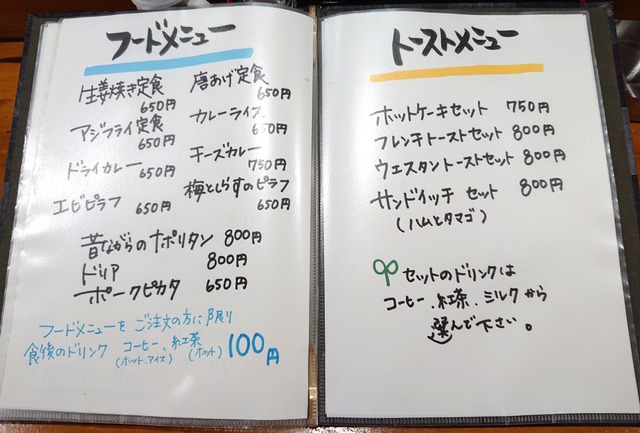 フードメニュー
生姜焼き定食 650円
唐あげ定食 650円
アジフライ定食 650円
カレーライス 650円
ドライカレー 650円
チーズカレー 750円
エビピラフ 650円
梅としらすのピラフ 650円
昔ながらのナポリタン 800円
ドリア 800円
ポークピカタ 650円
フードメニューをご注文の方に限り
食後のドリンク コーヒー、紅茶 100円
(ホット、アイス) (ホット)
トーストメニュー
ホットケーキセット 750円
フレンチトーストセット 800円
ウエスタントーストセット 800円
サンドイッチ セット 800円
(ハムとタマゴ)
セットのドリンクは
コーヒー、紅茶、ミルクから
選んで下さい。